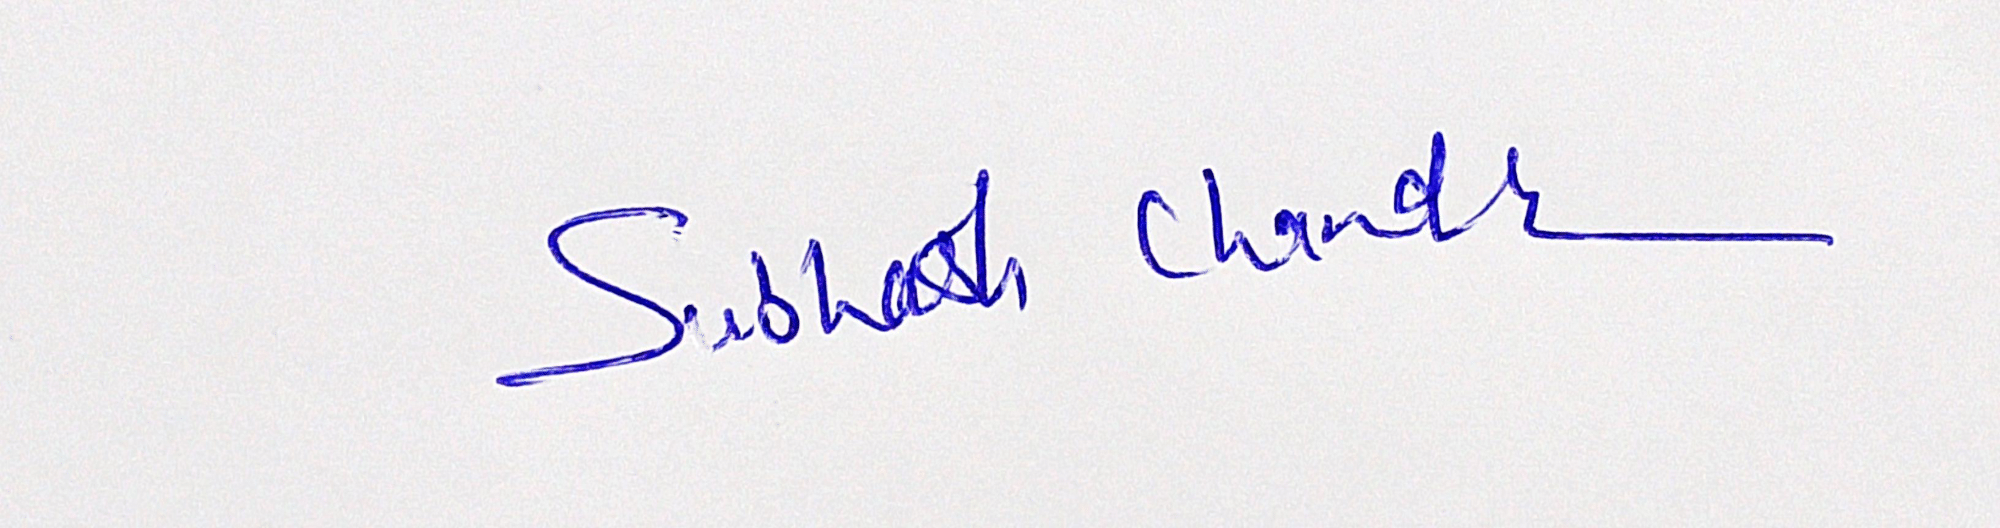 Subhash Chandra